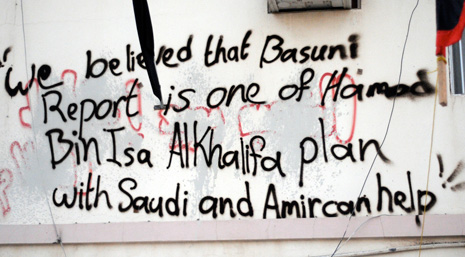 "We believed that Basuni
Report is one of Hamad
Bin Isa AlKhalifa plan
with Saudi and Amircan help!!